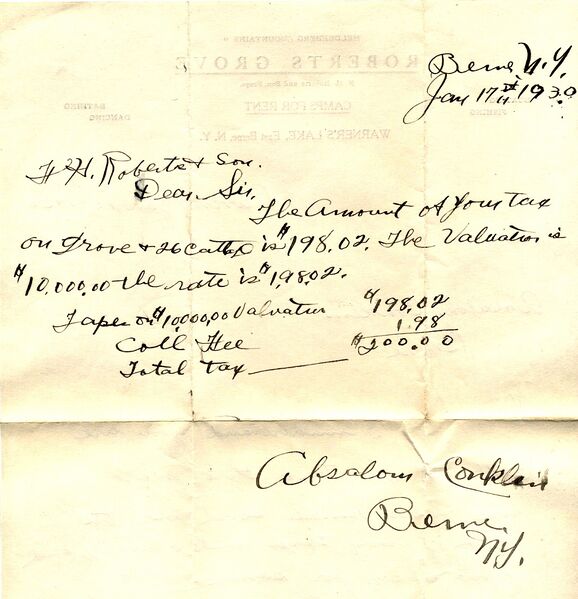 "HELDERBERG MOUNTAINS"
ROBERTS GROVE
CAMPS FOR RENT
BATHING
DANCING
FISHING
WARNER'S LAKE, East Berne, N. Y.
Berne N.Y.
Jan 17th 1930
H. Roberts & Son.
Dear Sir,
The Amount of your tax
on Grove & 26 is $198.02. The Valuation is
$10,000.00 the rate is $1,98.02.
Taxes on $10,000,00 Valuation $198.02
Coll Fee 1.98
Total tax $200.00
Absalom Conklin
Berne
N.Y.